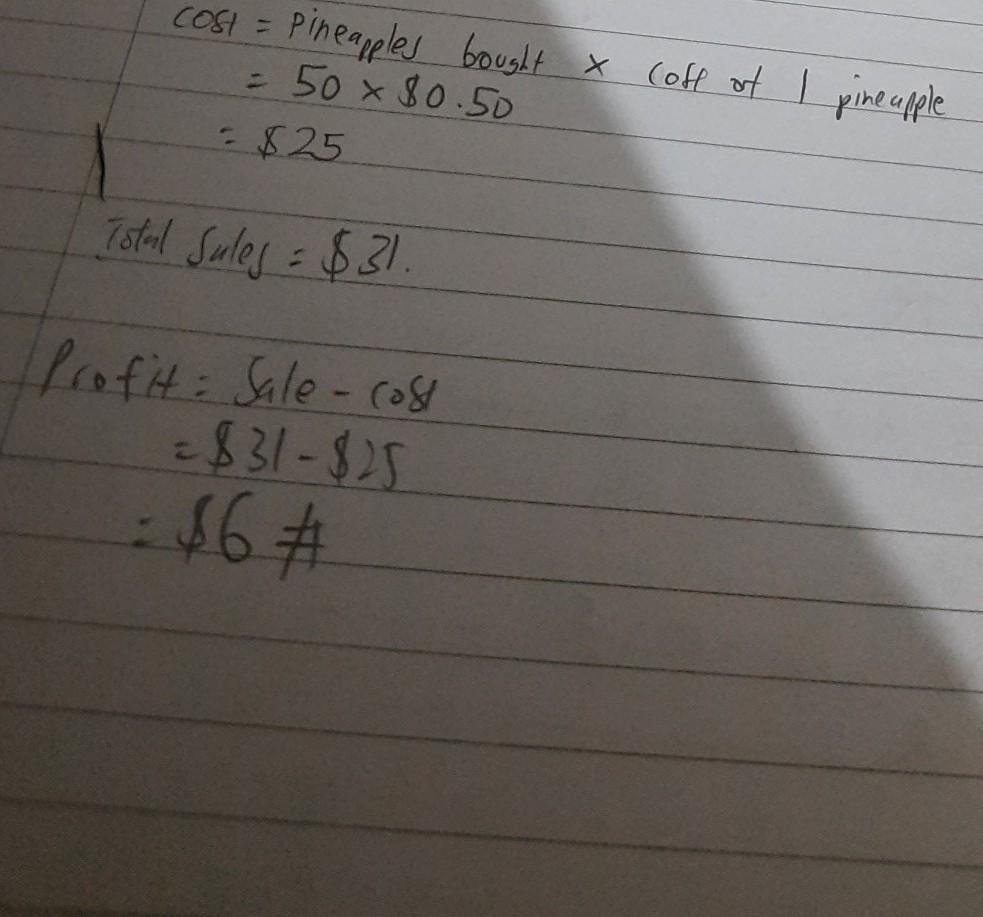 cost = Pineapples bought × Cost of 1 pineapple
= 50 × $0.50
= $25
Total Sales = $31.
Profit = Sale - cost
= $31 - $25
= $6 #